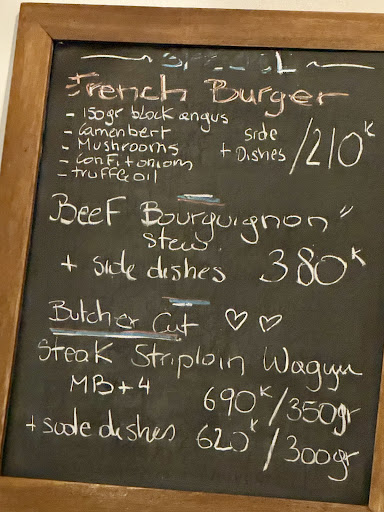 SPECIAL
French Burger
- 150gr block angus
- Camembert
- Mushrooms
- Confit oniom
- truffe oil
side
+ Dishes /210K
Beef Bourguignon"
Stew
+ side dishes 380K
Butcher Cut ♡ ♡
Steak Striploin Wagyu
MB+4 690K/350gr
+ side dishes 620K/300gr